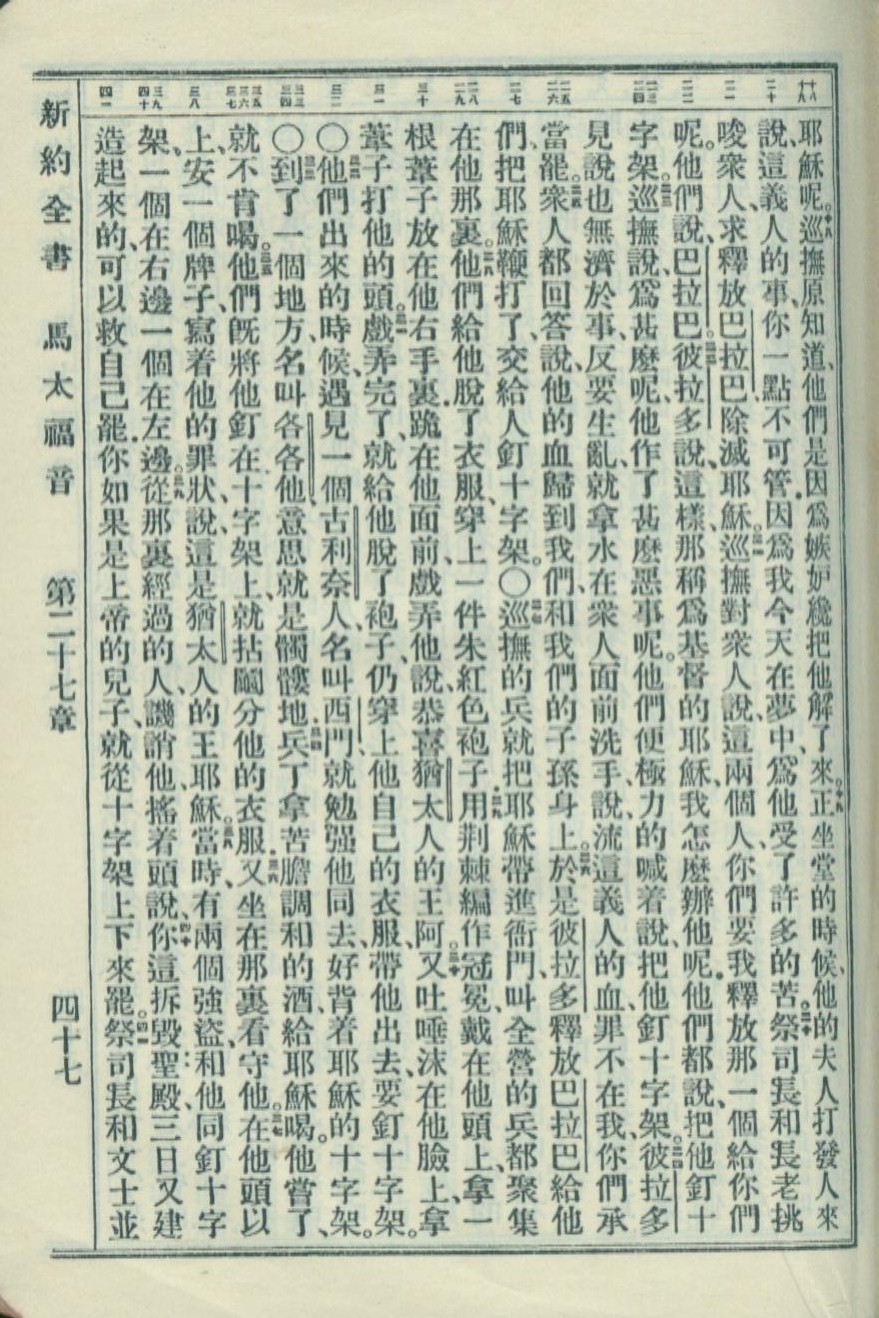 十八 十九 二十 二一 二二 二三 二四 二五 二六 二七 二八 二九 三十 三一 三二 三三 三四 三五 三六 三七 三八 三九 四十 四一
耶穌呢。十八巡撫原知道、他們是因爲嫉妒纔把他解了來。十九正坐堂的時候、他的夫人打發人來
說、這義人的事、你一點不可管、因爲我今天在夢中、爲他受了許多的苦。二十祭司長和長老挑
唆衆人、求釋放巴拉巴、除滅耶穌。二一巡撫對衆人說、這兩個人、你們要我釋放那一個給你們
呢。他們說、巴拉巴。二二彼拉多說、這樣、那稱爲基督的耶穌、我怎麼辦他呢。他們都說、把他釘十
字架。二三巡撫說、爲甚麼呢、他作了甚麼惡事呢。他們便極力的喊着說、把他釘十字架。二四彼拉多
見說也無濟於事、反要生亂、就拿水在衆人面前洗手、說、流這義人的血、罪不在我、你們承
當罷。二五衆人都回答說、他的血歸到我們、和我們的子孫身上。二六於是彼拉多釋放巴拉巴給他
們、把耶穌鞭打了、交給人釘十字架。〇二七巡撫的兵就把耶穌帶進衙門、叫全營的兵都聚集
在他那裏。二八他們給他脫了衣服、穿上一件朱紅色袍子、二九用荆棘編作冠冕、戴在他頭上、拿一
根葦子放在他右手裏、跪在他面前、戲弄他說、恭喜猶太人的王阿。三十又吐唾沫在他臉上、拿
葦子打他的頭。三一戲弄完了、就給他脫了袍子、仍穿上他自己的衣服、帶他出去、要釘十字架。
〇三二他們出來的時候、遇見一個古利奈人、名叫西門、就勉强他同去、好背着耶穌的十字架。
〇三三到了一個地方、名叫各各他、意思就是髑髏地、三四兵丁拿苦膽調和的酒、給耶穌喝。他嘗了、
就不肯喝。三五他們旣將他釘在十字架上、就拈鬮分他的衣服。三六又坐在那裏看守他。三七在他頭以
上、安一個牌子、寫着他的罪狀、說、這是猶太人的王耶穌。三八當時、有兩個強盜、和他同釘十字
架、一個在右邊、一個在左邊。三九從那裏經過的人、譏誚他、搖着頭說、四十你這拆毀聖殿、三日又建
造起來的、可以救自己罷、你如果是上帝的兒子、就從十字架上下來罷。四一祭司長和文士並
新約全書 馬太福音 第二十七章 四十七